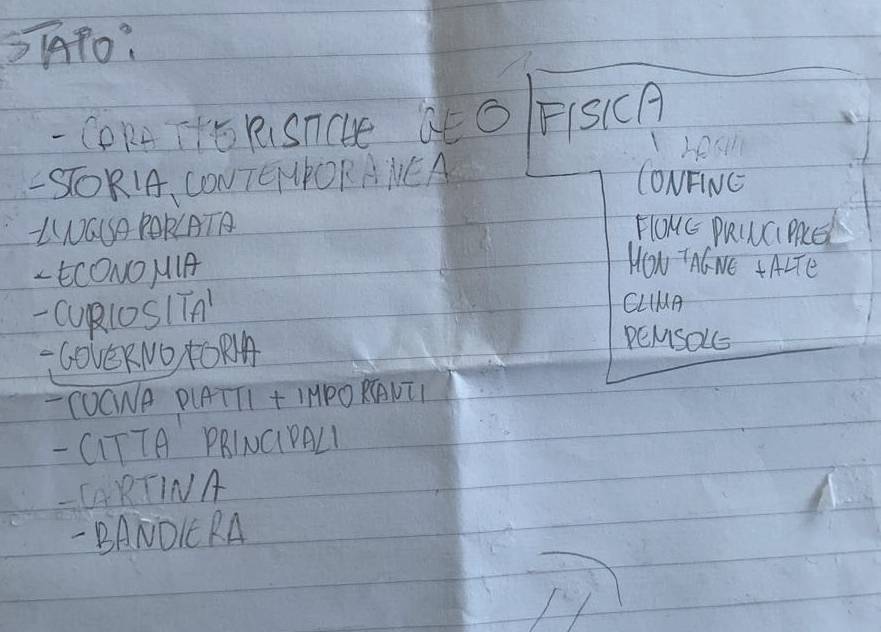 STATO:
- CARATTERISTICHE GEO FISICA
- STORIA CONTEMPORANEA
- LINGUA PARLATA
- ECONOMIA
- CURIOSITA'
- GOVERNO, FORMA
- CUCINA PIATTI + IMPORTANTI
- CITTA' PRINCIPALI
- CARTINA
- BANDIERA
LAGHI
CONFINE
FIUME PRINCIPALE
MONTAGNE + ALTE
CLIMA
PENISOLE